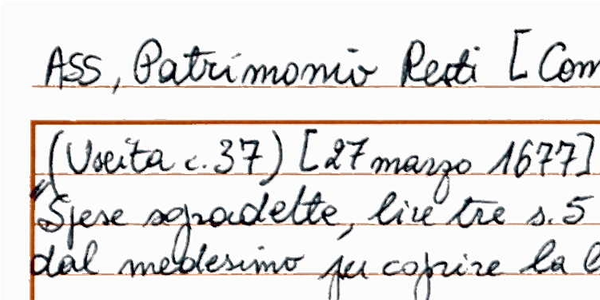 ASS, Patrimonio Resti [Com
(Uscita c. 37) [27 marzo 1677]
"Spese sopradette, lire tre s. 5
dal medesimo per coprire la